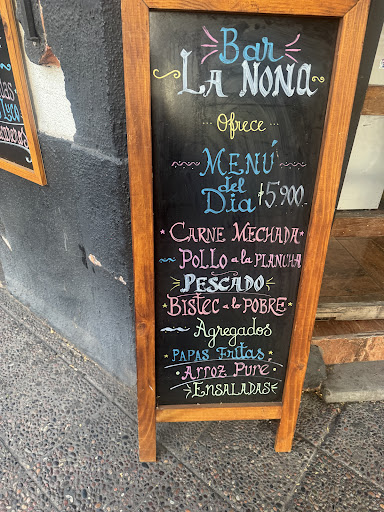 Bar
LA NONA
Ofrece
MENÚ
del
Día $5.900.-
CARNE MECHADA
POLLO a la PLANCHA
PESCADO
BISTEC a lo POBRE
Agregados
PAPAS Fritas
ARROZ PURE
ENSALADAS